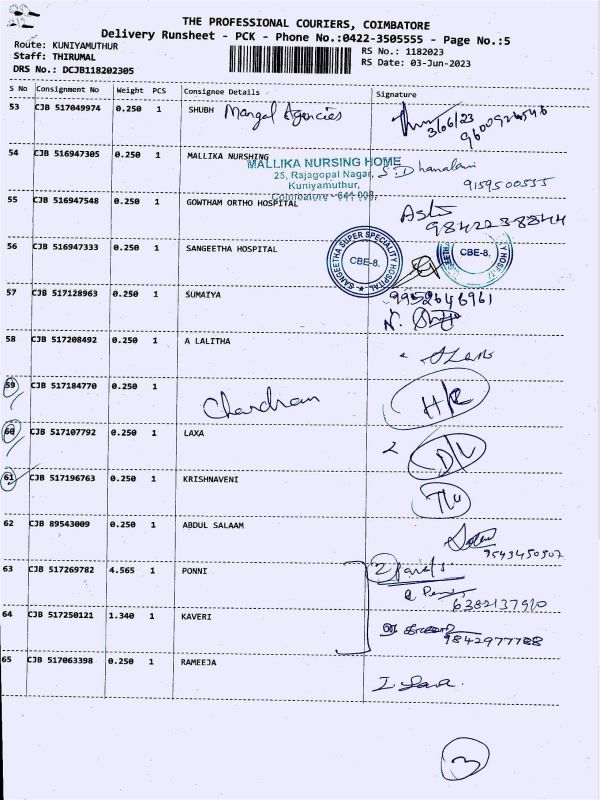 THE PROFESSIONAL COURIERS, COIMBATORE
Delivery Runsheet - PCK - Phone No.:0422-3505555 - Page No.:5
Route: KUNIYAMUTHUR
RS No.: 1182023
Staff: THIRUMAL
RS Date: 03-Jun-2023
DRS No.: DCJB118202305
S No Consignment No Weight PCS Consignee Details Signature
53 CJB 517049974 0.250 1 SHUBH Mangal Agencies
3/06/23
54 CJB 516947305 0.250 1 MALLIKA NURSHING
MALLIKA NURSING HOME
25, Rajagopal Nagar, S. Dhanalani
Kuniyamuthur,
9159500555
Coimbatore - 641 008.
55 CJB 516947548 0.250 1 GOWTHAM ORTHO HOSPITAL
9842238844
56 CJB 516947333 0.250 1 SANGEETHA HOSPITAL
SANGEETHA SUPER SPECIALITY HOSPITAL
CBE-8.
CBE-8.
57 CJB 517128963 0.250 1 SUMAIYA
9952646961
58 CJB 517208492 0.250 1 A LALITHA
59 CJB 517184770 0.250 1 Chandran H/C
60 CJB 517107792 0.250 1 LAXA D/L
61 CJB 517196763 0.250 1 KRISHNAVENI
62 CJB 89543009 0.250 1 ABDUL SALAAM
9543450507
63 CJB 517269782 4.565 1 PONNI 2
6382137910
64 CJB 517250121 1.340 1 KAVERI
9842977788
65 CJB 517063398 0.250 1 RAMEEJA
3